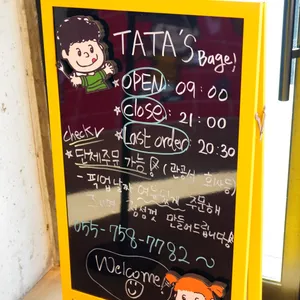 TATA'S Bagel
★OPEN: 09:00
★Close: 21:00
check✓
★Last order: 20:30
★단체주문 가능 (관공서
- 픽업날짜 주문해
정성껏 만들어드립니다
055-758-7782~
Welcome!